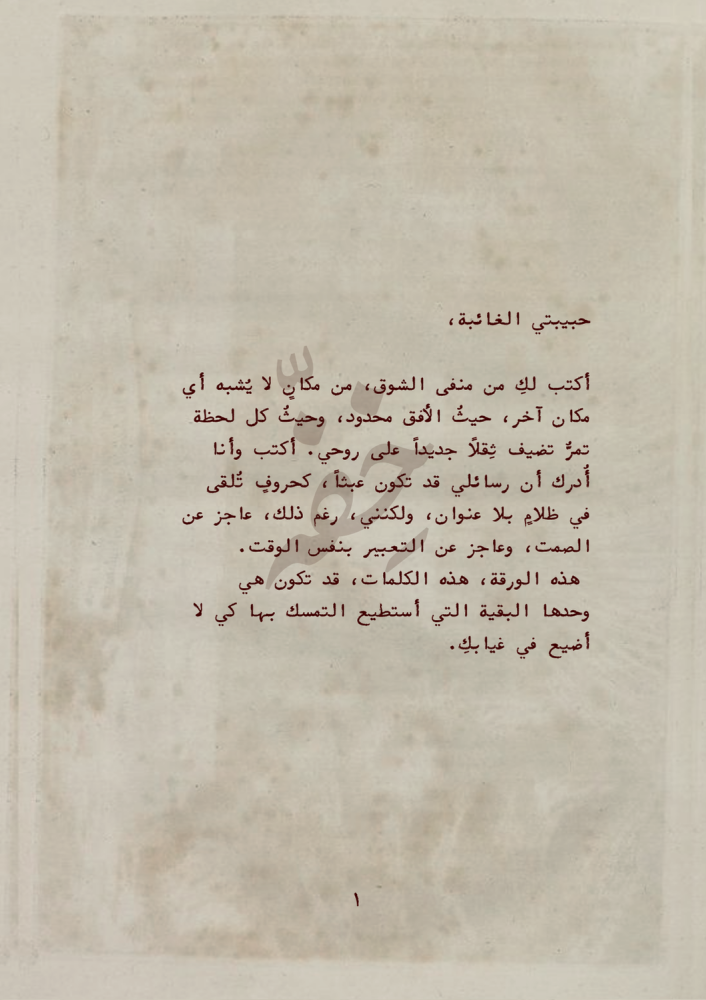 حبيبتي الغائبة،
أكتب لكِ من منفى الشوق، من مكانٍ لا يُشبه أي
مكان آخر، حيثُ الأفق محدود، وحيثُ كل لحظة
تمرُّ تضيف ثِقلًا جديداً على روحي. أكتب وأنا
أُدرك أن رسائلي قد تكون عبثاً، كحروفٍ تُلقى
في ظلامٍ بلا عنوان، ولكنني، رغم ذلك، عاجز عن
الصمت، وعاجز عن التعبير بنفس الوقت.
هذه الورقة، هذه الكلمات، قد تكون هي
وحدها البقية التي أستطيع التمسك بها كي لا
أضيع في غيابكِ.
١